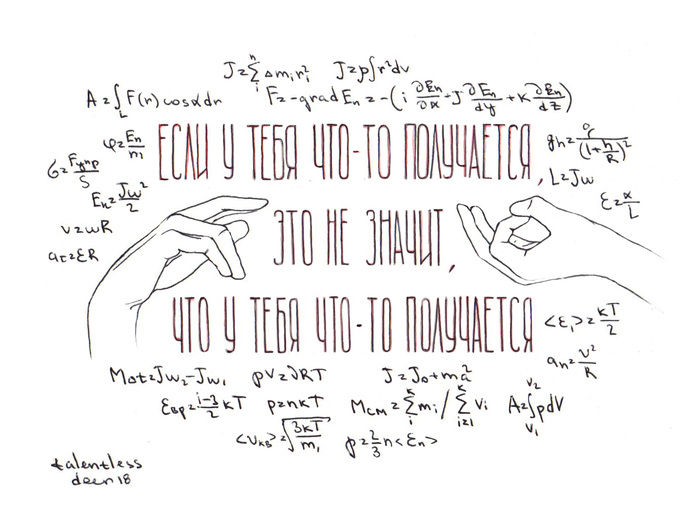 J=∑ᵢⁿ Δmᵢrᵢ² J=ρ∫r²dv
A=∫_L F(r)cosαdr F=-gradEn=-(i ∂En/∂x + J ∂En/dy + K ∂En/dz)
φ=En/m₁
ЕСЛИ У ТЕБЯ ЧТО-ТО ПОЛУЧАЕТСЯ,
σ=Fупр/S
L=Jω
En=Jω²/2
ε=x/L
v=ωR
ЭТО НЕ ЗНАЧИТ,
aτ=εR
ЧТО У ТЕБЯ ЧТО-ТО ПОЛУЧАЕТСЯ
<ε₁>=кТ/2
an=v²/R
MΔt=Jω₂-Jω₁ pV=νRT J=J₀+ma²
Eвр=(i-3)/2 кТ p=nкТ Mсм=∑ᵢᴷ mᵢ/∑ᵢ₌₁ᴷ νᵢ A=∫pdV V₂ V₁
<Vкв>=√(3кТ/m₁) p=2/3 n<En>
talentless
deer18